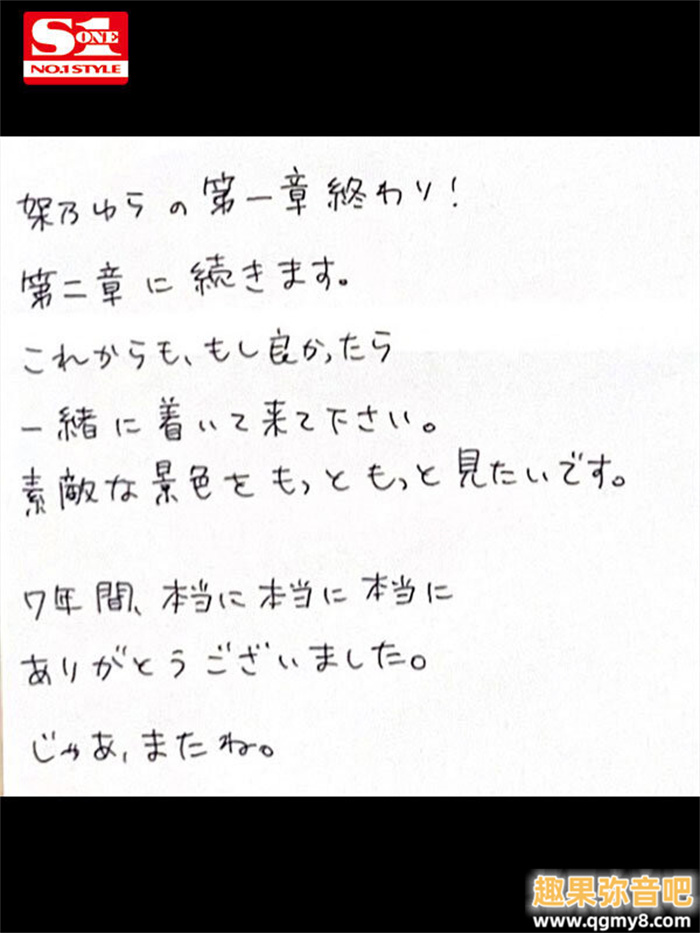 S1
ONE
NO.1 STYLE
架乃ゆらの第一章終わり!
第二章に続きます。
これからも、もし良かったら
一緒に着いて来て下さい。
素敵な景色をもっともっと見たいです。
7年間、本当に本当に本当に
ありがとうございました。
じゃあ、またね。
趣果弥音吧
www.qgmy8.com